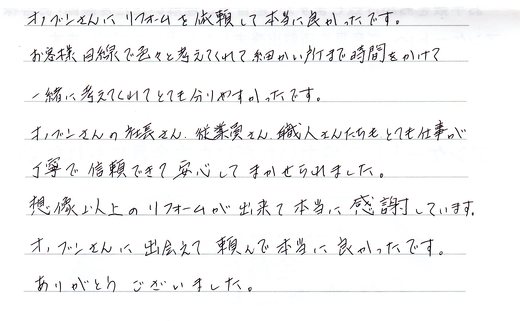 オノブンさんにリフォームを依頼して本当に良かったです。
お客様目線で色々と考えてくれて細かい所まで時間をかけて
一緒に考えてくれてとても分りやすかったです。
オノブンさんの社長さん、従業員さん、職人さんたちもとても仕事が
丁寧で信頼できて安心してまかせられました。
想像以上のリフォームが出来て本当に感謝しています。
オノブンさんに出会えて頼んで本当に良かったです。
ありがとうございました。